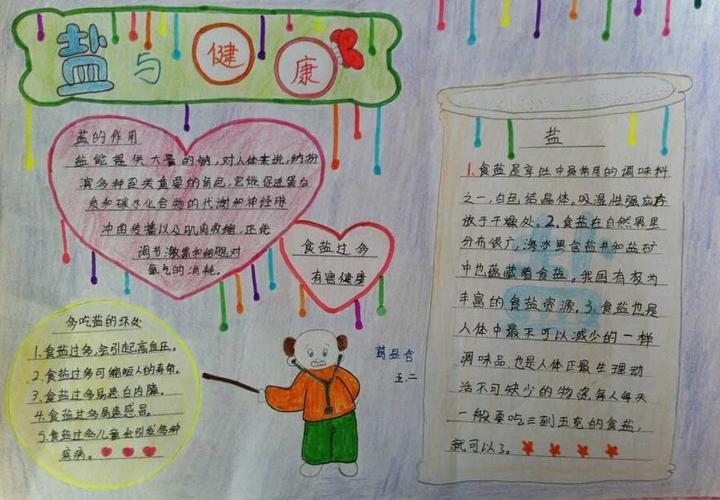 盐与健康
盐的作用
盐能提供大量的钠,对人体来说,钠扮
演多种至关重要的角色,它能促进蛋白
质和碳水化合物的代谢和神经脉
冲的传播以及肌肉收缩,还能
调节激素和细胞对
氧气的消耗。
食盐过多
有害健康
多吃盐的坏处
1.食盐过多,会引起高血压。
2.食盐过多可缩短人的寿命。
3.食盐过多易患白内障。
4.食盐过多易患感冒。
5.食盐过多儿童会引发多种
疾病。
五.二
盐
1.食盐是烹饪中最常用的调味料
之一,白色结晶体。吸湿性强应存
放于干燥处。2.食盐在自然界里
分布很广,海水里含盐,井和盐矿
中也蕴藏着食盐。我国有极为
丰富的食盐资源。3.食盐也是
人体中最不可以减少的一样
调味品,也是人体正最生理动
活不可缺少的物流,每人每天
一般要吃三到五克的食盐,
就可以了。